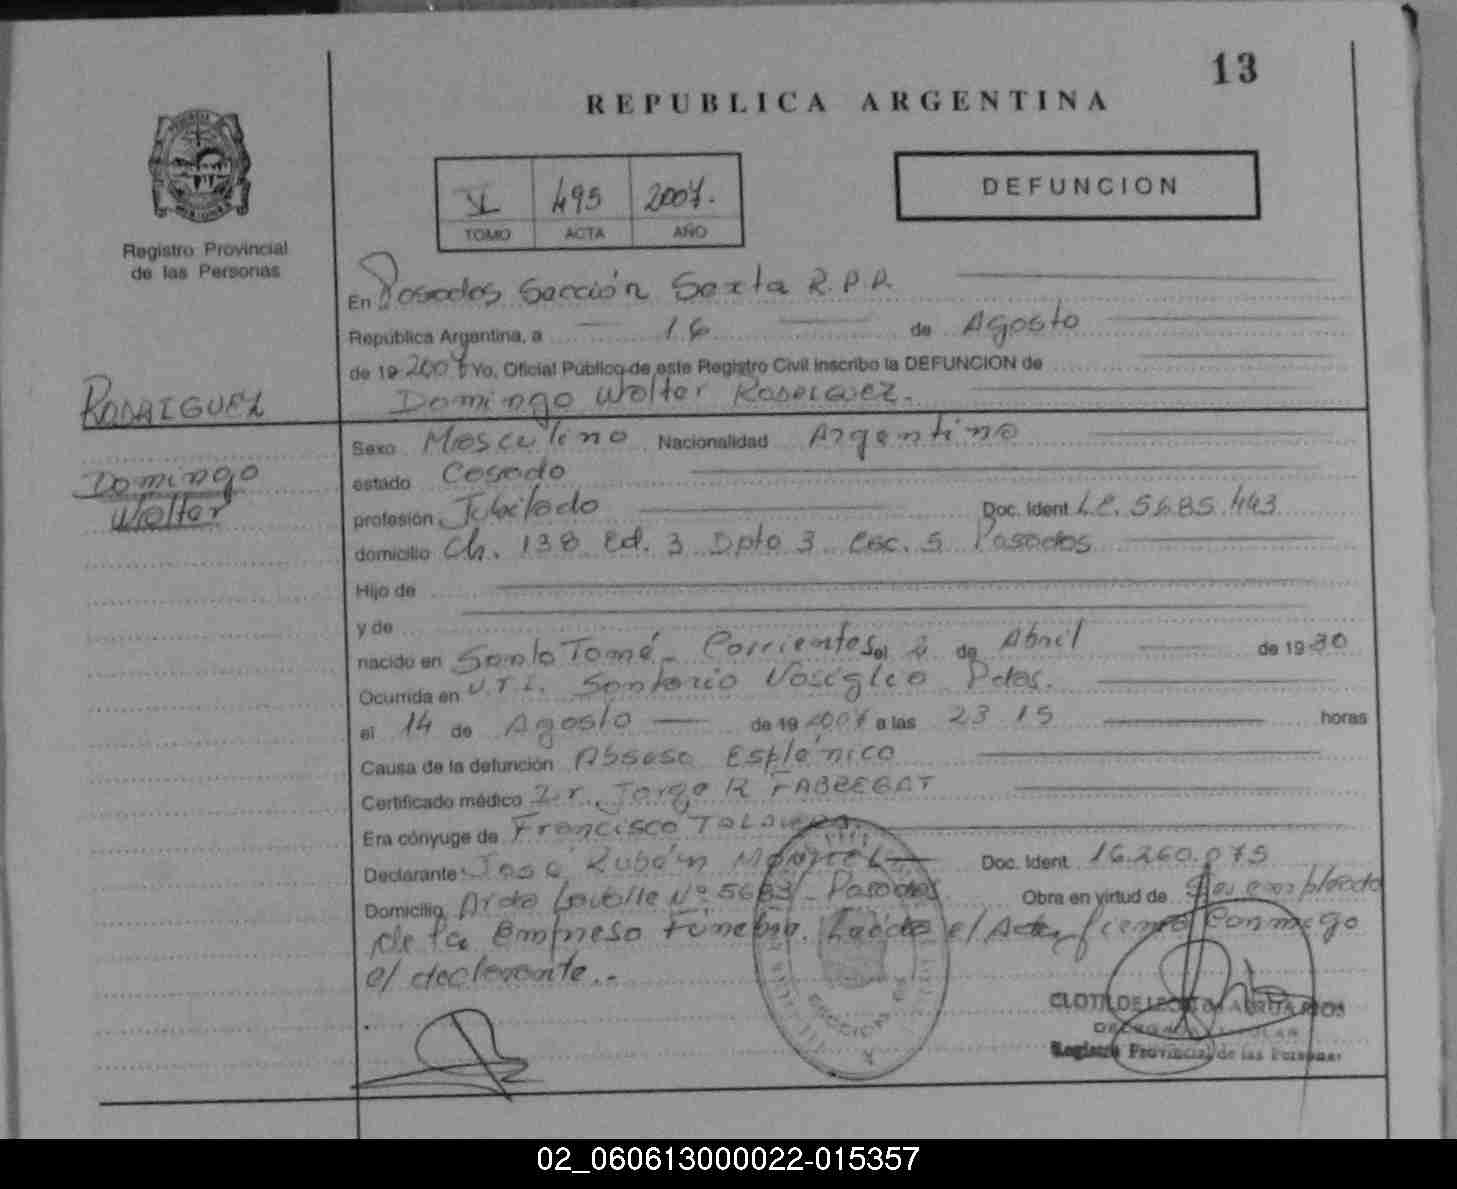 13
REPUBLICA ARGENTINA
DEFUNCION
495 2007.
TOMO ACTA AÑO
Registro Provincial
de las Personas
En Posadas Sección Sexta R.P.P.
República Argentina, a 16 de Agosto
de 19 2007 Yo, Oficial Público de este Registro Civil inscribo la DEFUNCION de
RODRIGUEZ
Domingo Walter Rodriguez.
Sexo Masculino Nacionalidad Argentina
Domingo
Walter
estado Casado
profesión Jubilado Doc. Ident L.E. 5.685.443
domicilio Ch. 138 Ed. 3 Dpto 3 Esc. 5 Posadas
Hijo de
y de
nacido en Santo Tomé - Corrientes el 2 de Abril de 19 30
Ocurrida en U.T.I. Sanatorio Pdas.
el 14 de Agosto de 19 2007 a las 23 15 horas
Causa de la defunción Abseso Esplénico
Certificado médico Dr. Jorge R FABREGAT
Era cónyuge de Francisca
Declarante José Rubén Doc. Ident. 16.260.075
Domicilio Avda Lavalle Nº 5683 - Posadas Obra en virtud de Ser empleado
de la Empresa Fúnebre. Leída el Acta firma Conmigo
el declarante..
Registro Provincial de las Personas
02_060613000022-015357